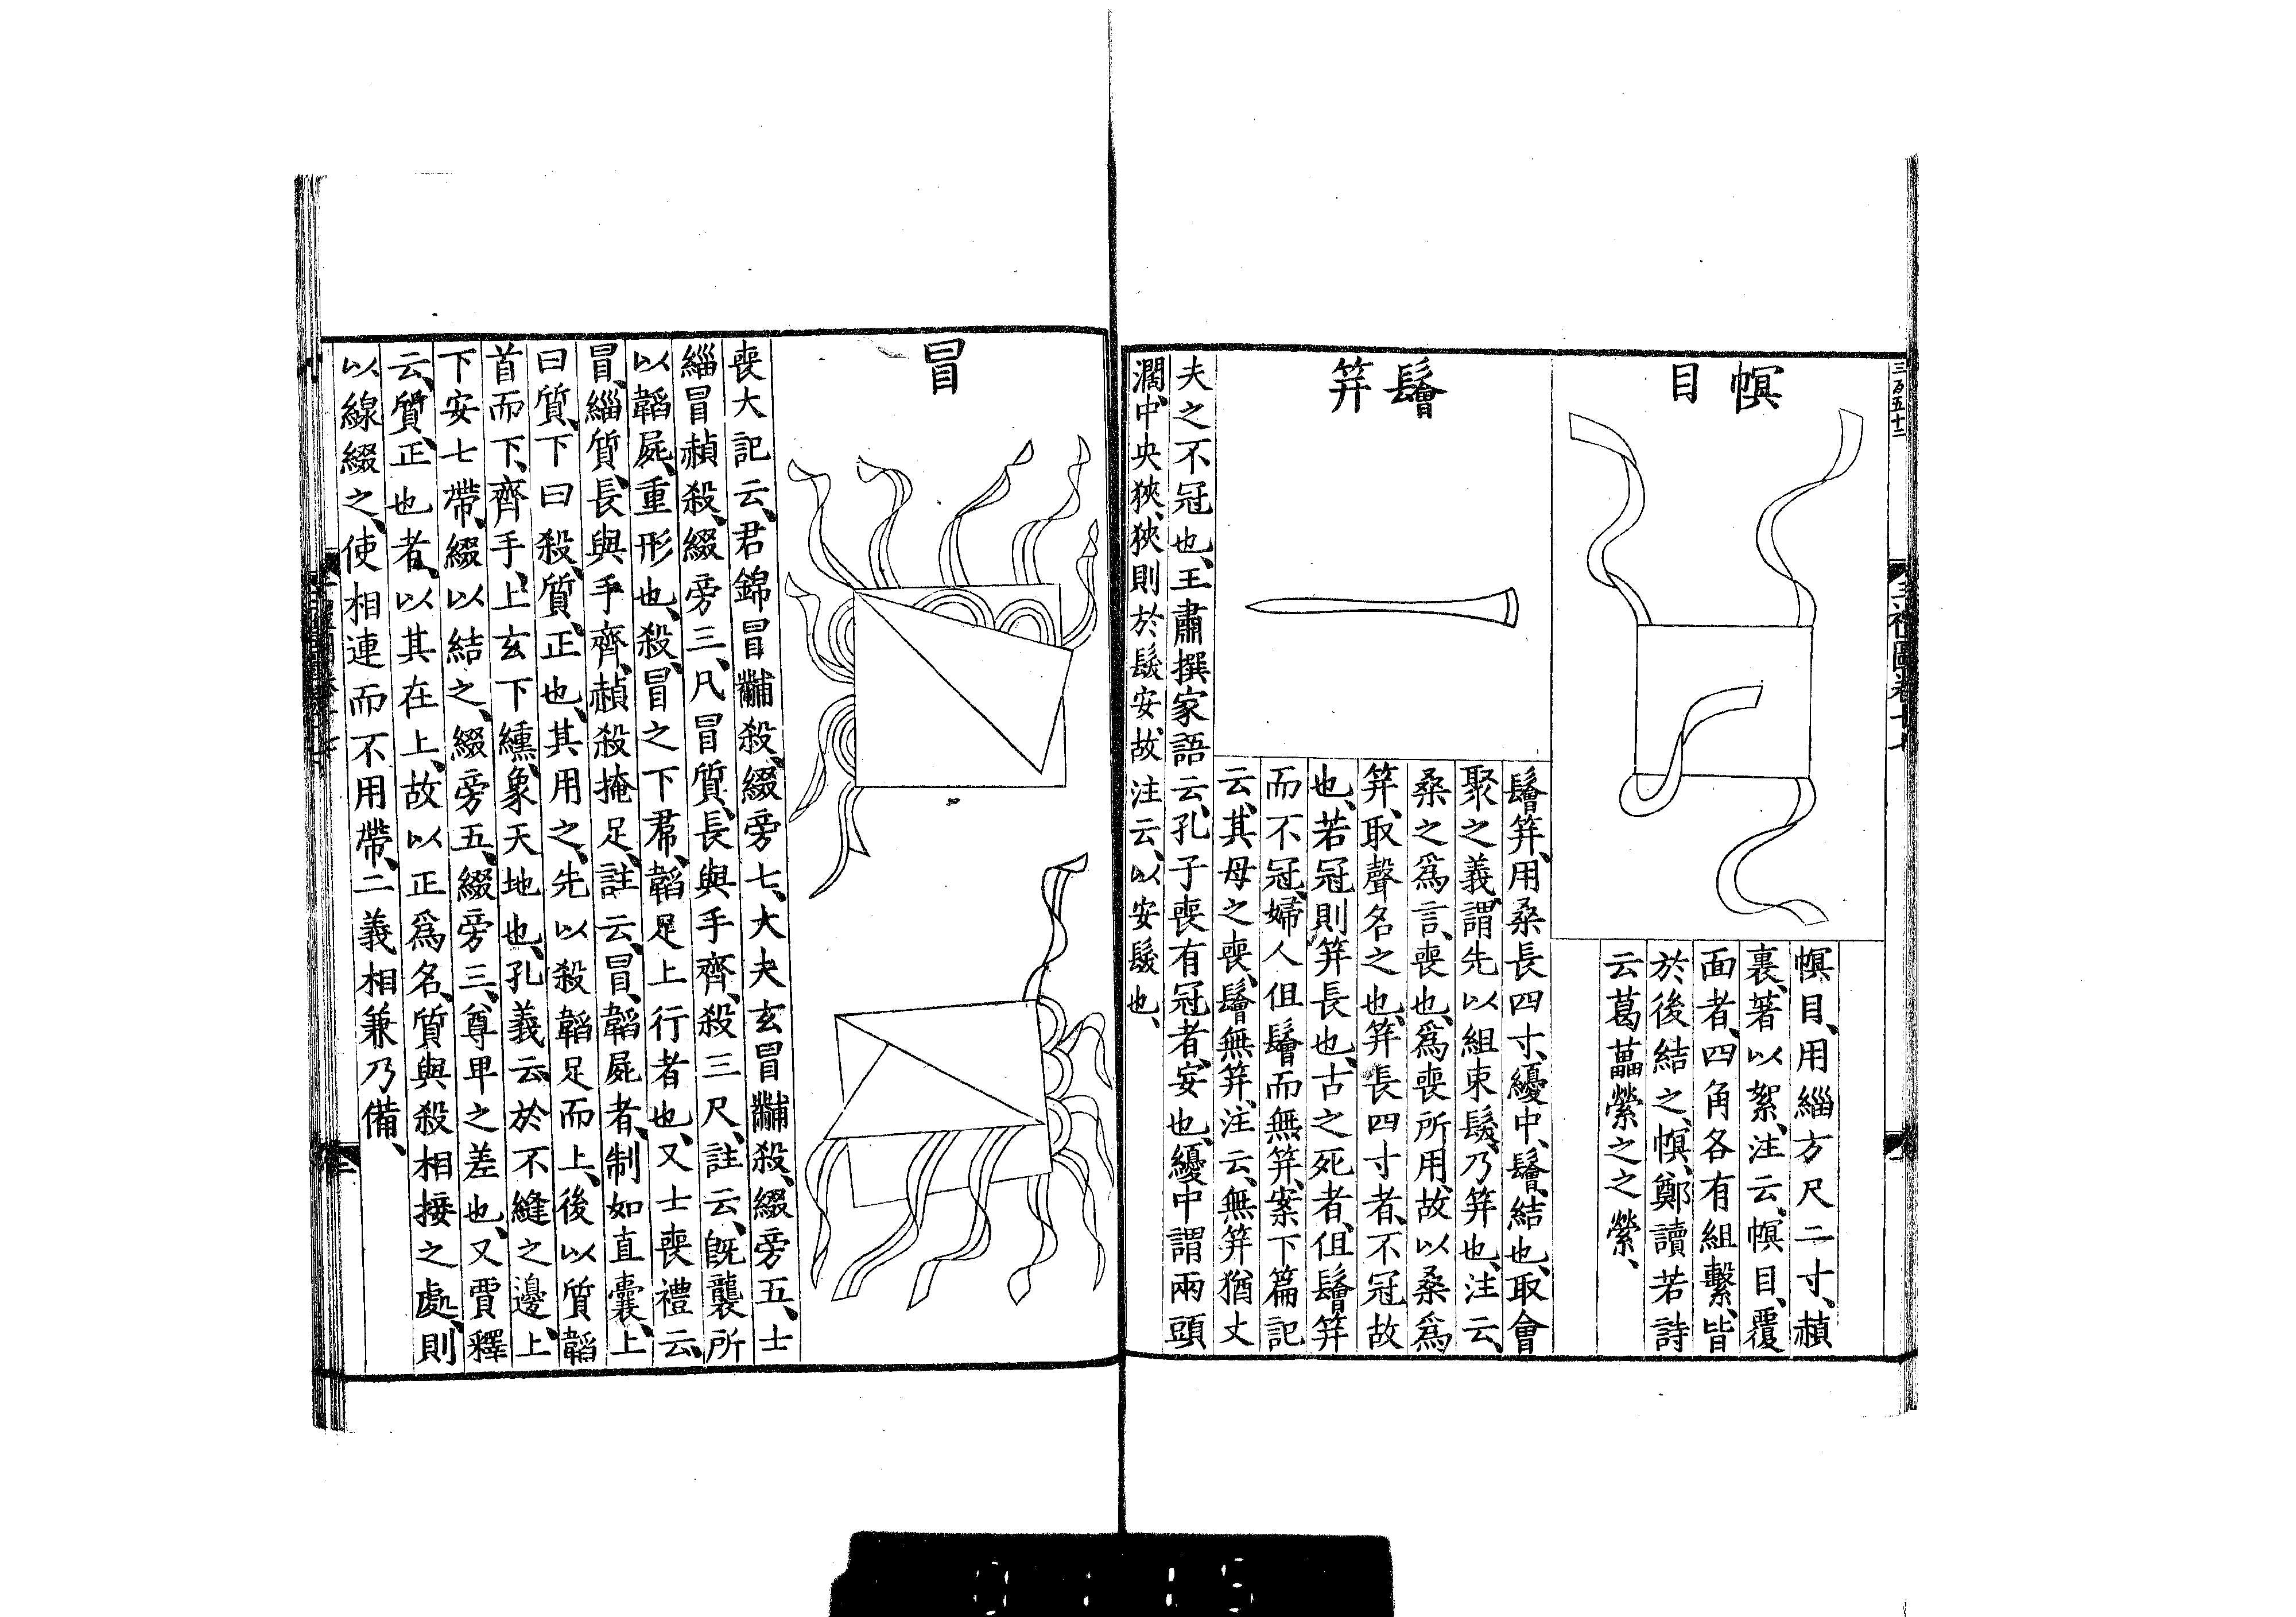 三百五十二
三禮圖卷十七
幎目
幎目、用緇方尺二寸、赬
裏、著以絮、注云、幎目、覆
面者、四角各有組繫、皆
於後結之、幎、鄭讀若詩
云葛藟縈之之縈、
鬠笄
鬠笄、用桑長四寸、纋中、鬠、結也、取會
聚之義、謂先以組束髮、乃笄也、注云、
桑之爲言、喪也、爲喪所用、故以桑爲
笄、取聲名之也、笄長四寸者、不冠故
也、若冠則笄長也、古之死者、但鬠笄
而不冠、婦人但鬠而無笄、案下篇記
云、其母之喪、鬠無笄、注云、無笄猶丈
夫之不冠也、王肅撰家語云、孔子喪有冠者、安也、纋中謂兩頭
濶、中央狹、狹則於髮安、故注云、以安髮也、
冒
喪大記云、君錦冒黼殺、綴旁七、大夫玄冒黼殺、綴旁五、士
緇冒赬殺、綴旁三、凡冒質、長與手齊、殺三尺、註云、旣襲所
以韜屍、重形也、殺、冒之下帬、韜足上行者也、又士喪禮云、
冒、緇質、長與手齊、赬殺掩足、註云、冒、韜屍者、制如直囊、上
曰質、下曰殺、質、正也、其用之、先以殺韜足而上、後以質韜
首而下、齊手、上玄下纁、象天地也、孔義云、於不縫之邊、上
下安七帶、綴以結之、綴旁五、綴旁三、尊卑之差也、又賈釋
云、質、正也者、以其在上、故以正爲名、質與殺相接之處、則
以線綴之、使相連而不用帶、二義相兼乃備、